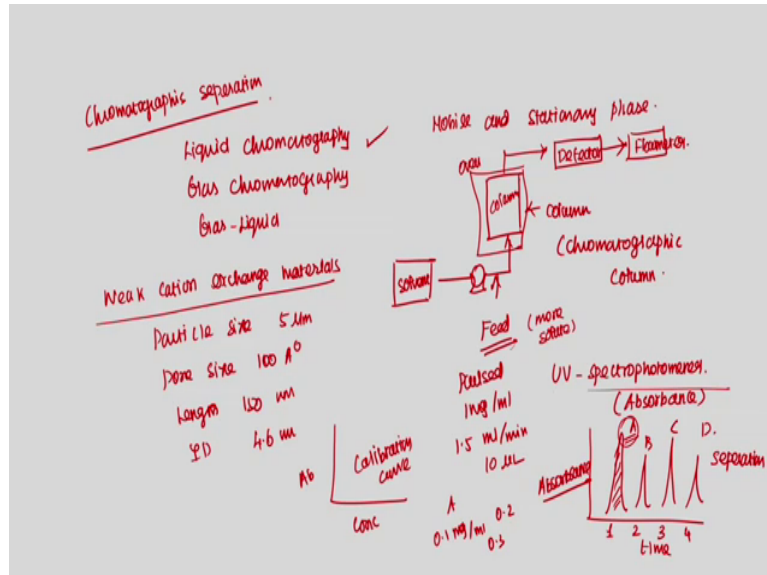 Chromatographic seperation.
Liquid chromatography ✓
Gas chromatography
Gas-Liquid
Weak cation exchange materials
Particle size 5 μm
Pore size 100 A°
Length 150 mm
ID 4.6 mm
Ab
Calibration
curve
Conc
Mobile and stationary phase.
oven
column
Detector
Flowmeter.
column
(chromatographic
column.
solvent
Feed (more
solute)
Pulsed
1 mg/ml
1.5 ml/min
10 μL
A
0.1 mg/ml 0.2
0.3
UV-spectrophotometer.
(Absorbance)
Absorbance
A
B
C
D.
seperation
1 2 3 4
time